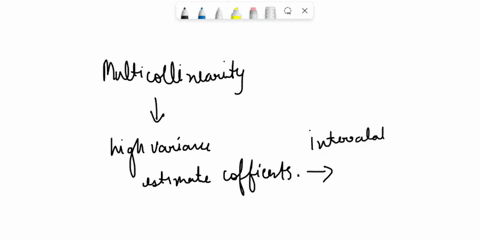 Multicollinearity
↓
high variance
intervalal
estimate cofficents. →